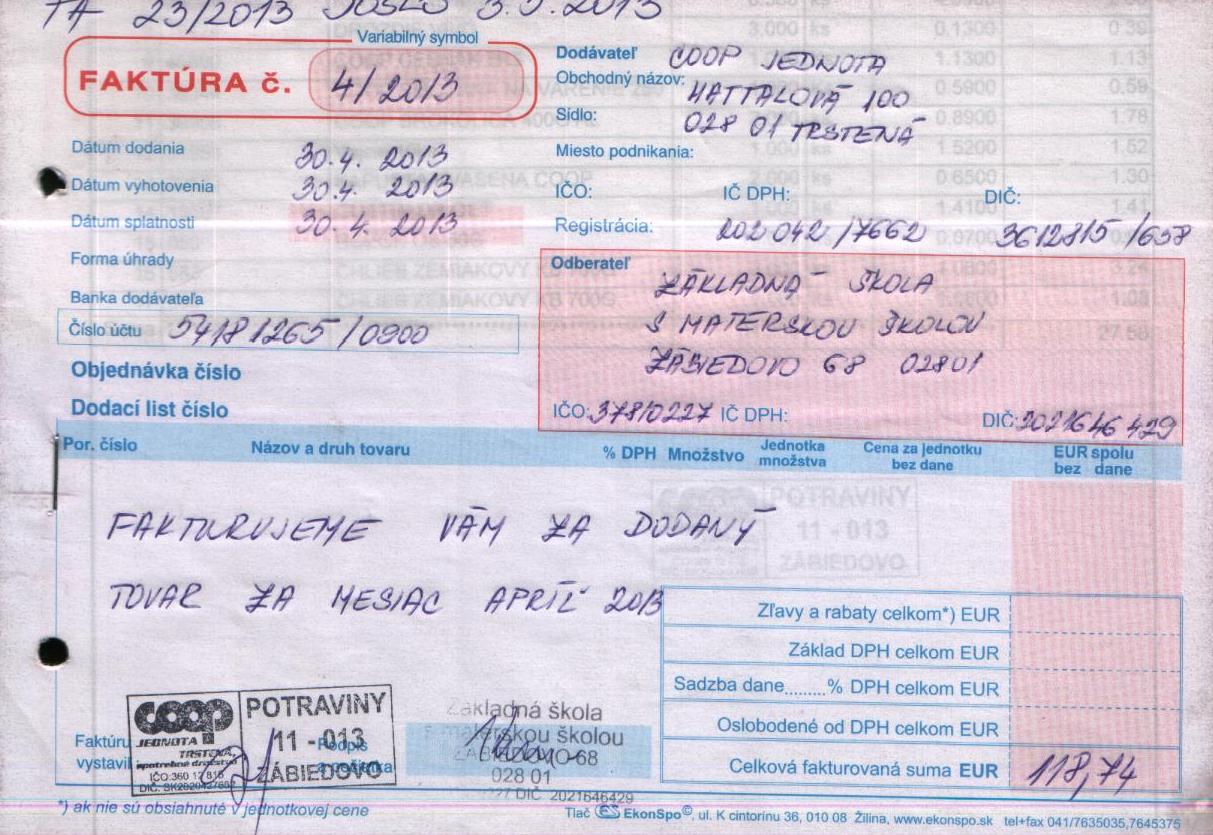 FA 23/2013 DOŠLO 3.5.2013
Variabilný symbol
FAKTÚRA č. 4/2013
Dátum dodania 30.4. 2013
Dátum vyhotovenia 30.4. 2013
Dátum splatnosti 30.4. 2013
Forma úhrady
Banka dodávateľa
Číslo účtu 54181265/0900
Objednávka číslo
Dodací list číslo
Dodávateľ COOP JEDNOTA
Obchodný názov: HATTALOVÁ 100
Sídlo: 028 01 TRSTENÁ
Miesto podnikania:
IČO: IČ DPH: DIČ:
Registrácia: 202 042 /7662 3612815 /658
Odberateľ ZÁKLADNÁ ŠKOLA
S MATERSKOU ŠKOLOU
ZÁBIEDOVO 68 02801
IČO: 37810227 IČ DPH: DIČ: 2021646429
Por. číslo Názov a druh tovaru % DPH Množstvo Jednotka množstva Cena za jednotku bez dane EUR spolu bez dane
FAKTURUJEME VÁM ZA DODANÝ
TOVAR ZA MESIAC APRÍL 2013
Zľavy a rabaty celkom*) EUR
Základ DPH celkom EUR
Sadzba dane.........% DPH celkom EUR
Oslobodené od DPH celkom EUR
Celková fakturovaná suma EUR 118,74
Faktúru vystavil
coop
JEDNOTA
TRSTENÁ,
spotrebné družstvo
POTRAVINY
11 - 013
ZÁBIEDOVO
Základná škola
s materskou školou
ZÁBIEDOVO 68
028 01
DIČ 2021646429
*) ak nie sú obsiahnuté v jednotkovej cene
Tlač ES EkonSpo©, ul. K cintorínu 36, 010 08 Žilina, www.ekonspo.sk tel+fax 041/7635035,7645375